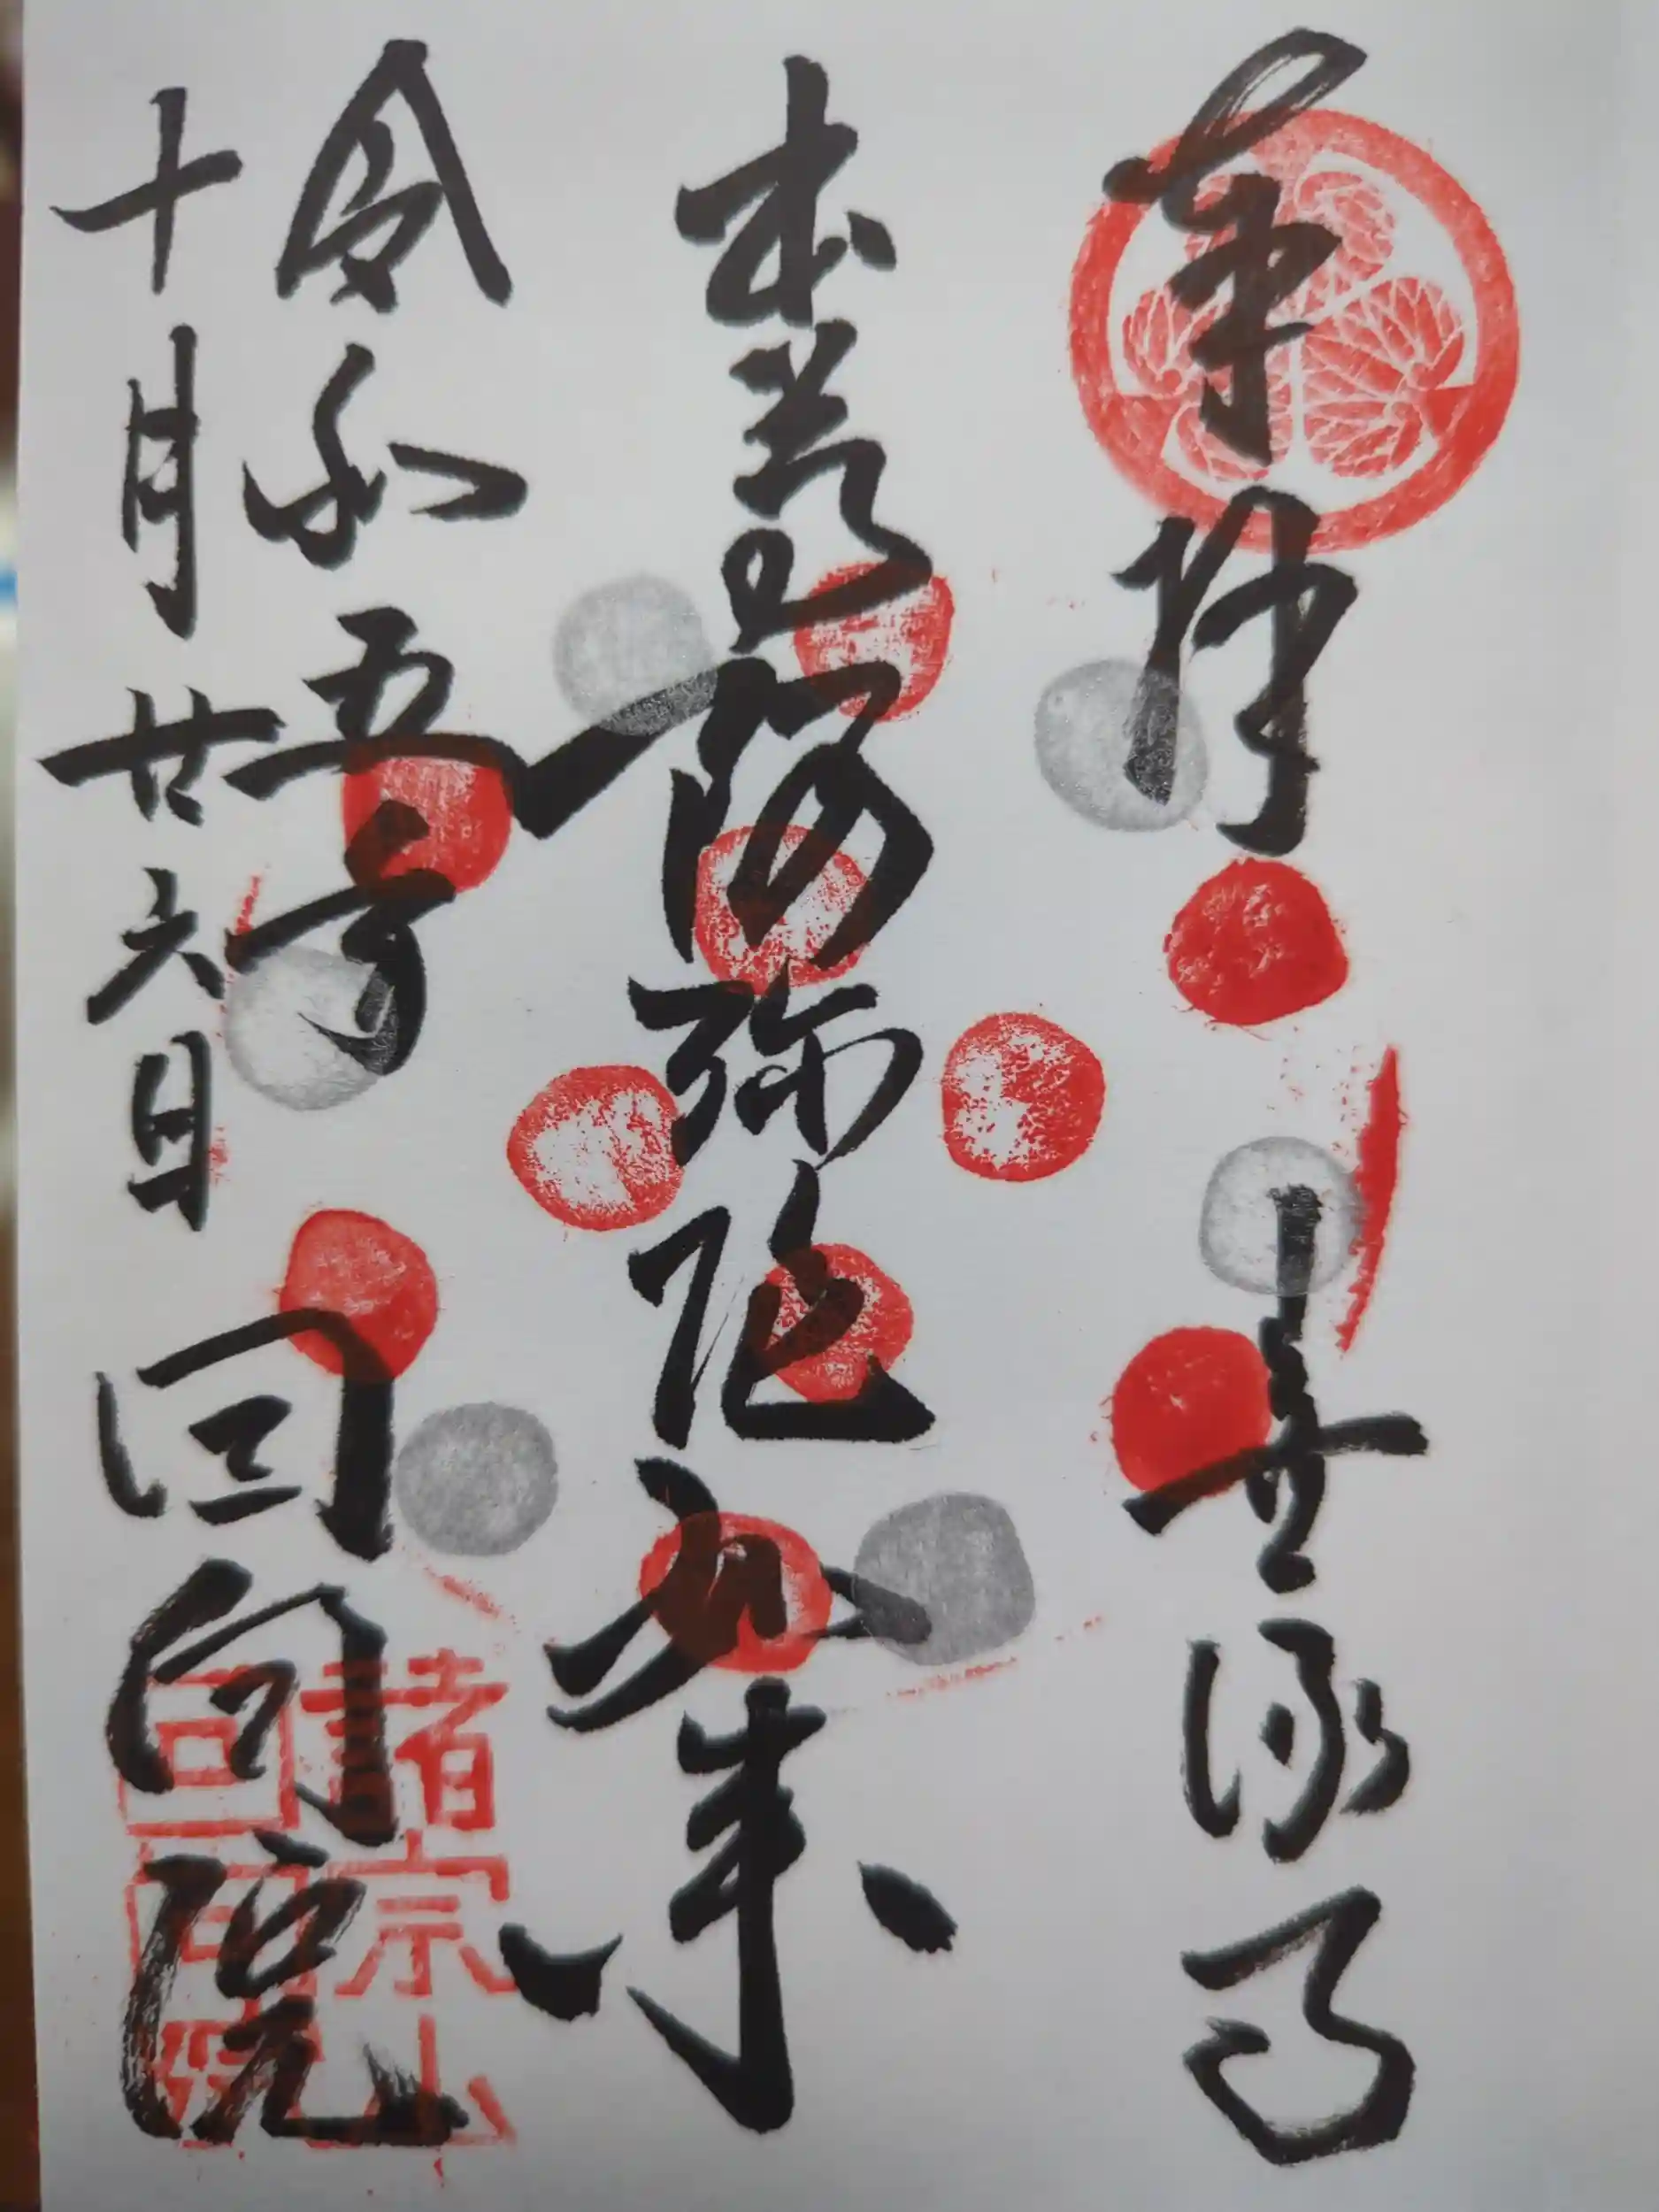 奉拝
本尊 阿弥陀如来
令和五年
十月廿六日 回向院
諸宗山
回向院